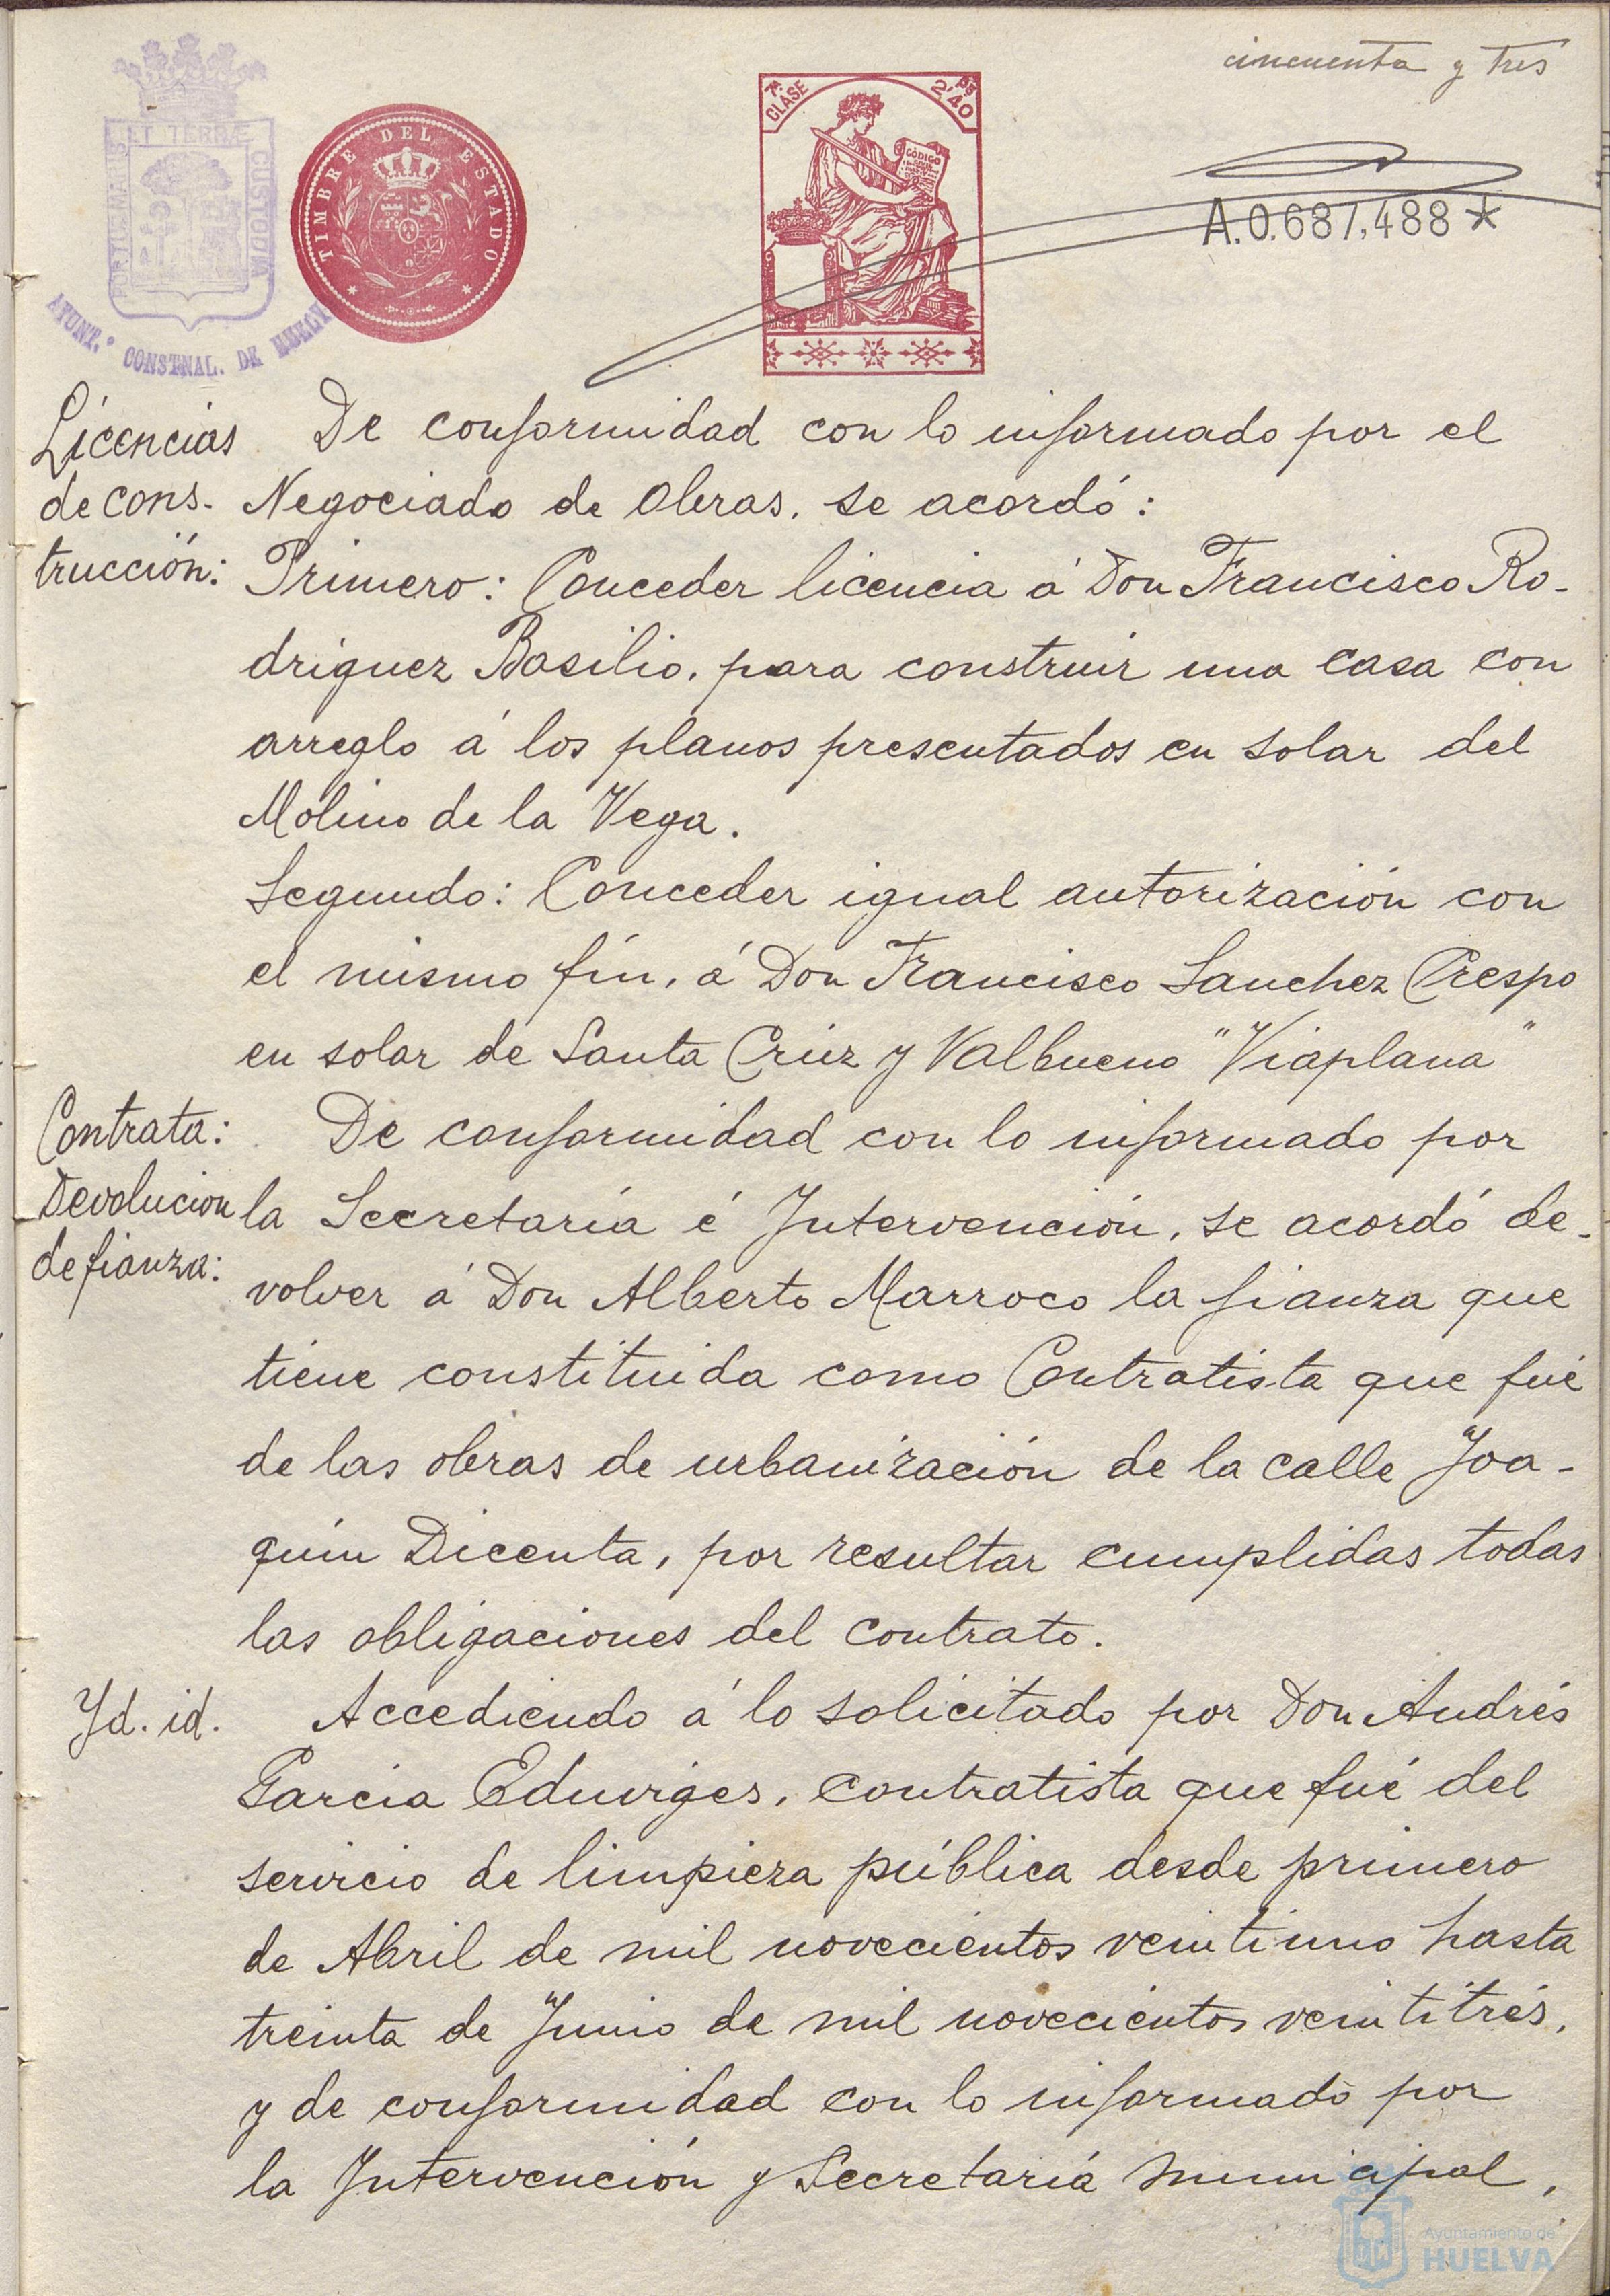 cincuenta y tres
7ª CLASE
2'40 Pts
CÓDIGO
TIMBRE DEL ESTADO
PORTUS MARIS ET TERRÆ CUSTODIA
AYUNT.º CONSTNAL. DE HUELVA
A.0.687,488*
Licencias
de cons-
trucción:
De conformidad con lo informado por el
Negociado de Obras, se acordó:
Primero: Conceder licencia á Don Francisco Ro-
driguez Basilio, para construir una casa con
arreglo á los planos presentados en solar del
Molino de la Vega.
Segundo: Conceder igual autorización con
el mismo fín, á Don Francisco Sanchez Crespo
en solar de Santa Crúz y Valbueno "Viaplana"
Contrata:
Devolucion
de fianza:
De conformidad con lo informado por
la Secretaría é Intervención, se acordó de-
volver á Don Alberto Marroco la fianza que
tiene constituida como Contratista que fué
de las obras de urbanización de la calle Joa-
quin Dicenta, por resultar cumplidas todas
las obligaciones del contrato.
Yd. id.
Accediendo á lo solicitado por Don Andrés
Garcia Eduviges, contratista que fué del
servicio de limpieza pública desde primero
de Abril de mil novecientos veintiuno hasta
treinta de Junio de mil novecientos veintitrés,
y de conformidad con lo informado por
la Intervención y Secretaría municipal,
Ayuntamiento de
HUELVA